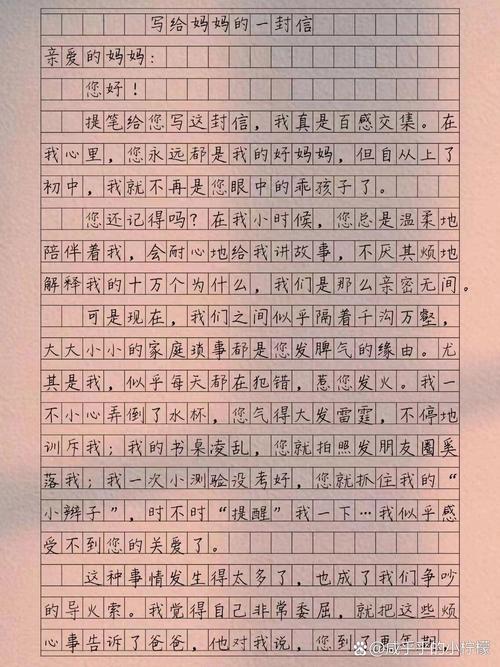 写给妈妈的一封信
亲爱的妈妈:
您好!
提笔给您写这封信,我真是百感交集。在
我心里,您永远都是我的好妈妈,但自从上了
初中,我就不再是您眼中的乖孩子了。
您还记得吗?在我小时候,您总是温柔地
陪伴着我,会耐心地给我讲故事,不厌其烦地
解释我的十万个为什么,我们是那么亲密无间。
可是现在,我们之间似乎隔着千沟万壑,
大大小小的家庭琐事都是您发脾气的缘由。尤
其是我,似乎每天都在犯错,惹您发火。我一
不小心弄倒了水杯,您气得大发雷霆,不停地
训斥我;我的书桌凌乱,您就拍照发朋友圈奚
落我;我一次小测验没考好,您就抓住我的“
小辫子”,时不时“提醒”我一下…我似乎感
受不到您的关爱了。
这种事情发生得太多了,也成了我们争吵
的导火索。我觉得自己非常委屈,就把这些烦
心事告诉了爸爸,他对我说,您到了更年期,
@咸于乎的小柠檬